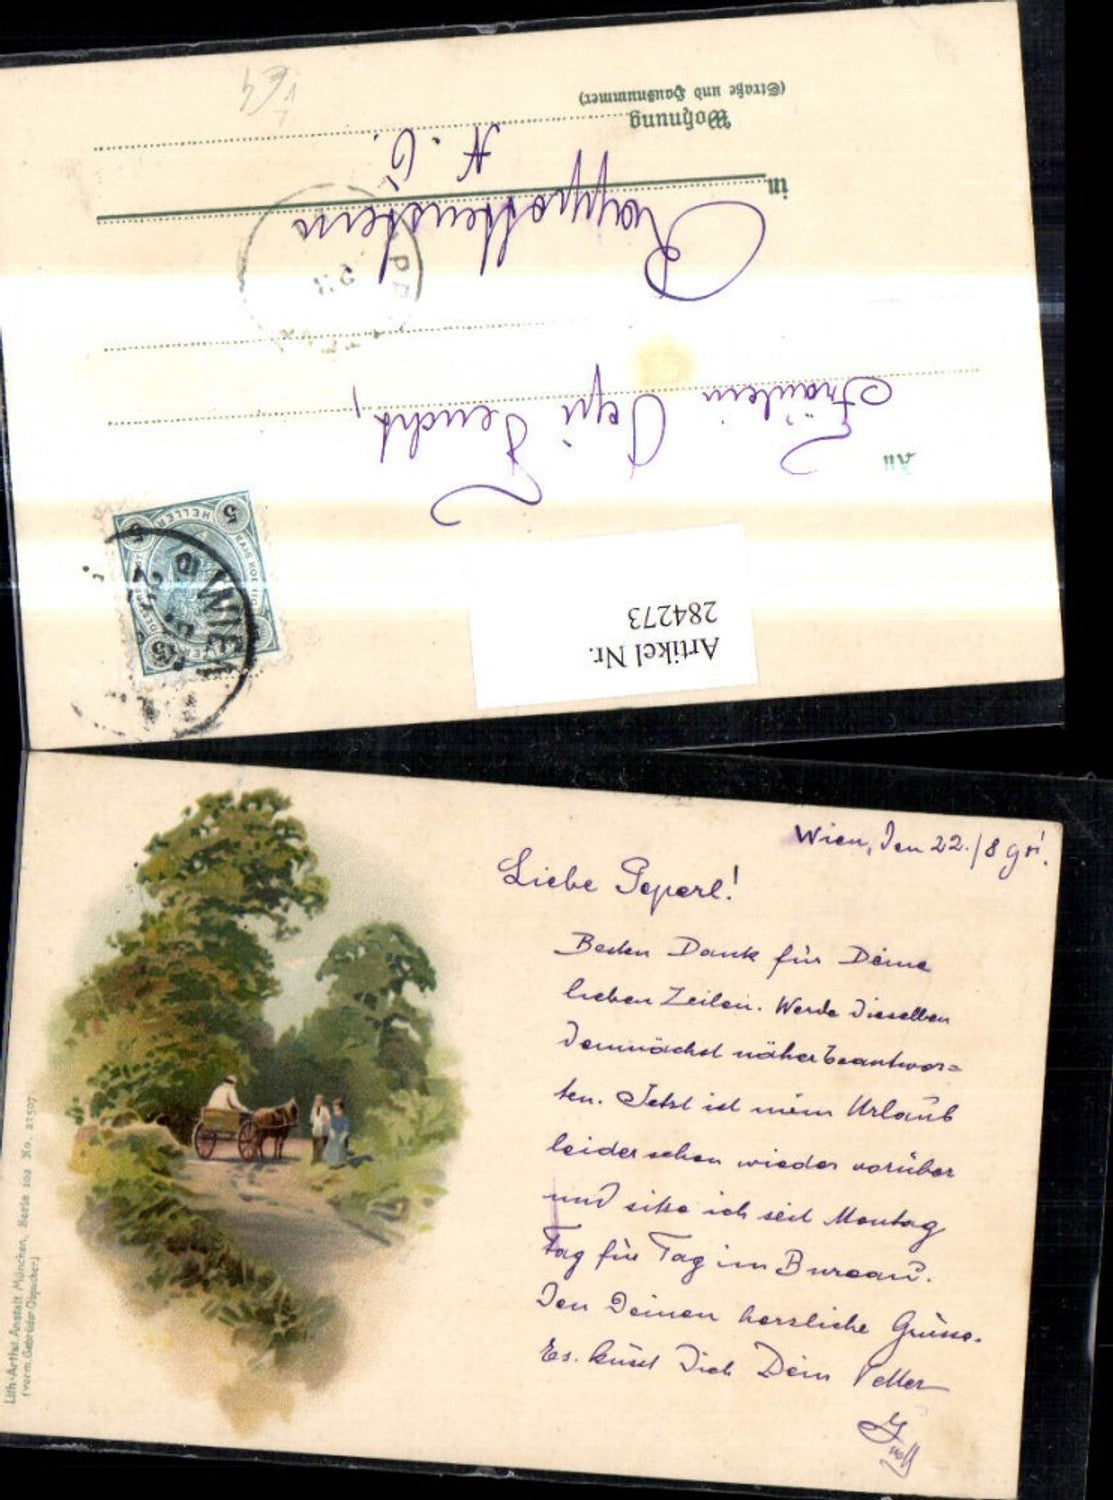 (Straße und Hausnummer)
Wohnung
N. Ö.
in
Rappottenstein
Fräulein Pepi Feucht,
An
5 HELLER 5
WIEN
284273
Artikel Nr.
Wien, den 22./8
Liebe Peperl!
Besten Dank für Deine
lieben Zeilen. Werde dieselben
demnächst näher beantwor=
ten. Jetzt ist mein Urlaub
leider schon wieder vorüber
und sitze ich seit Montag
Tag für Tag im Bureau.
Den Deinen herzliche Grüsse.
Es küsst Dich Dein Vetter
Lith.-Artist. Anstalt München, Serie 202 No. 21507
(vorm. Gebrüder Obpacher)